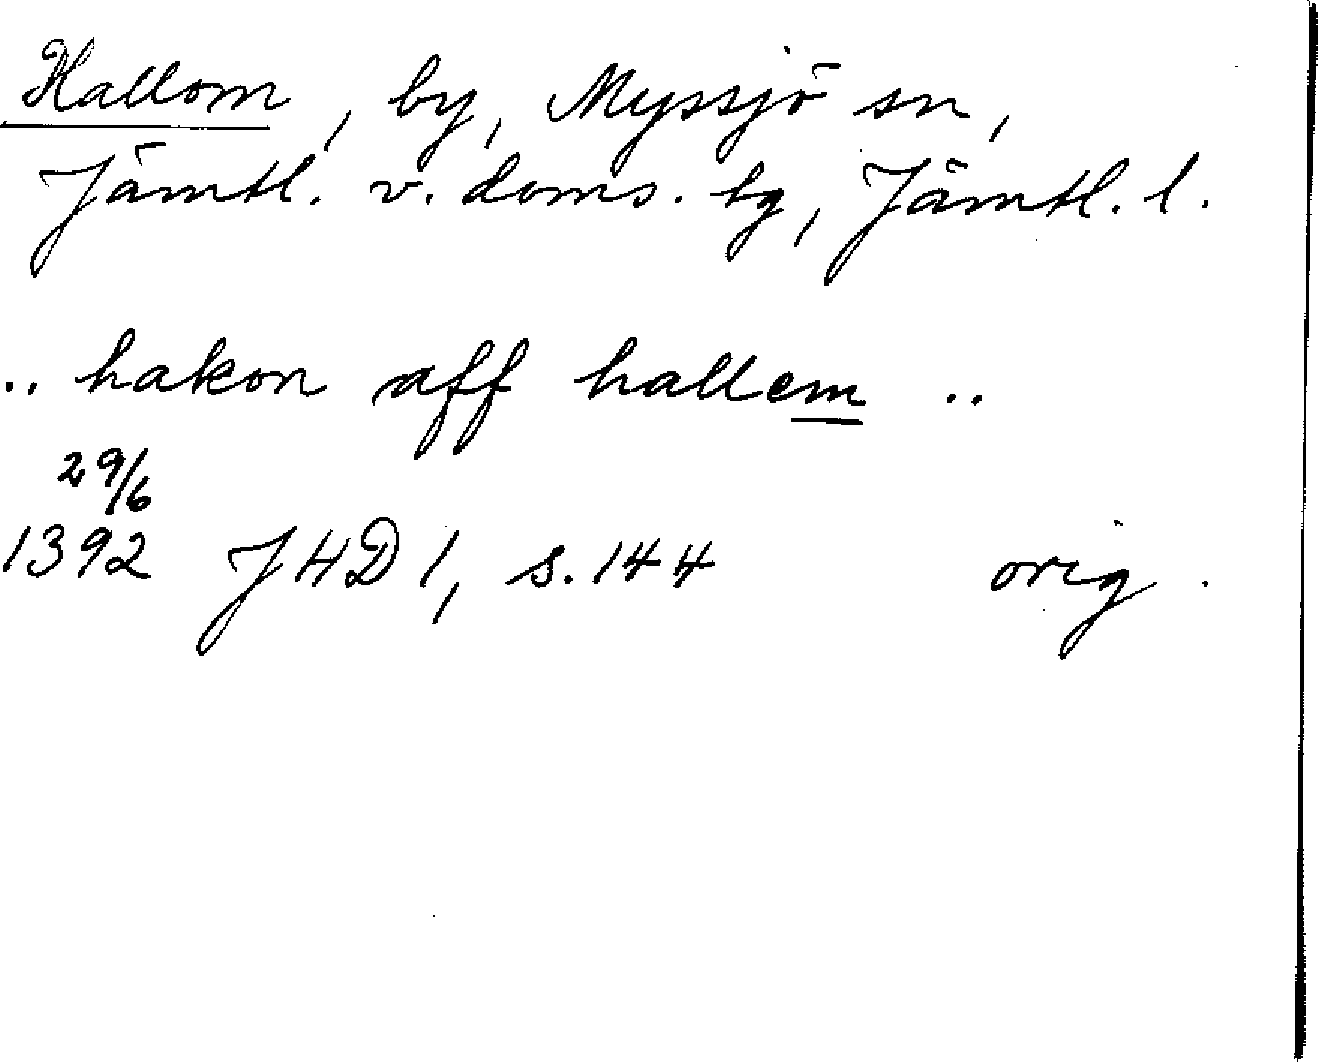 Hallom, by, Myssjö sn,
Jämtl. v. doms. tg, Jämtl. l.
.. hakon aff hallem ..
29/6
1392 JHD 1, s. 144 orig.